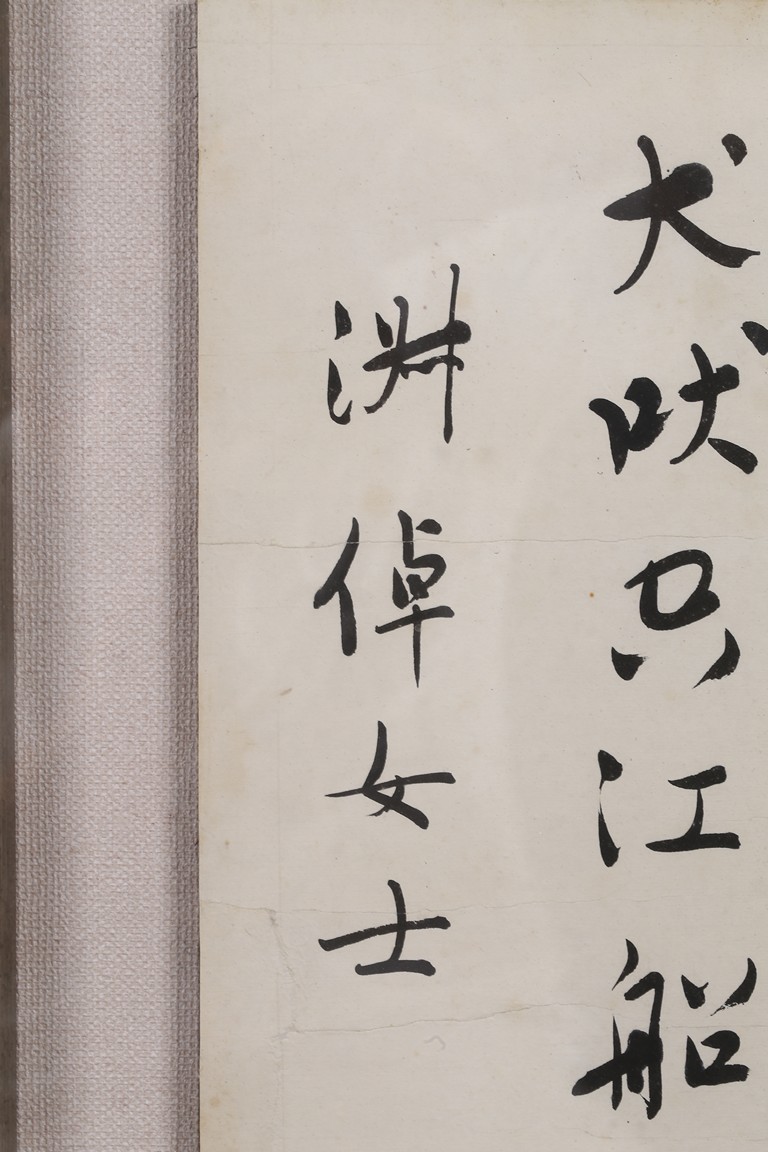 犬吠只江船
淵倬女士